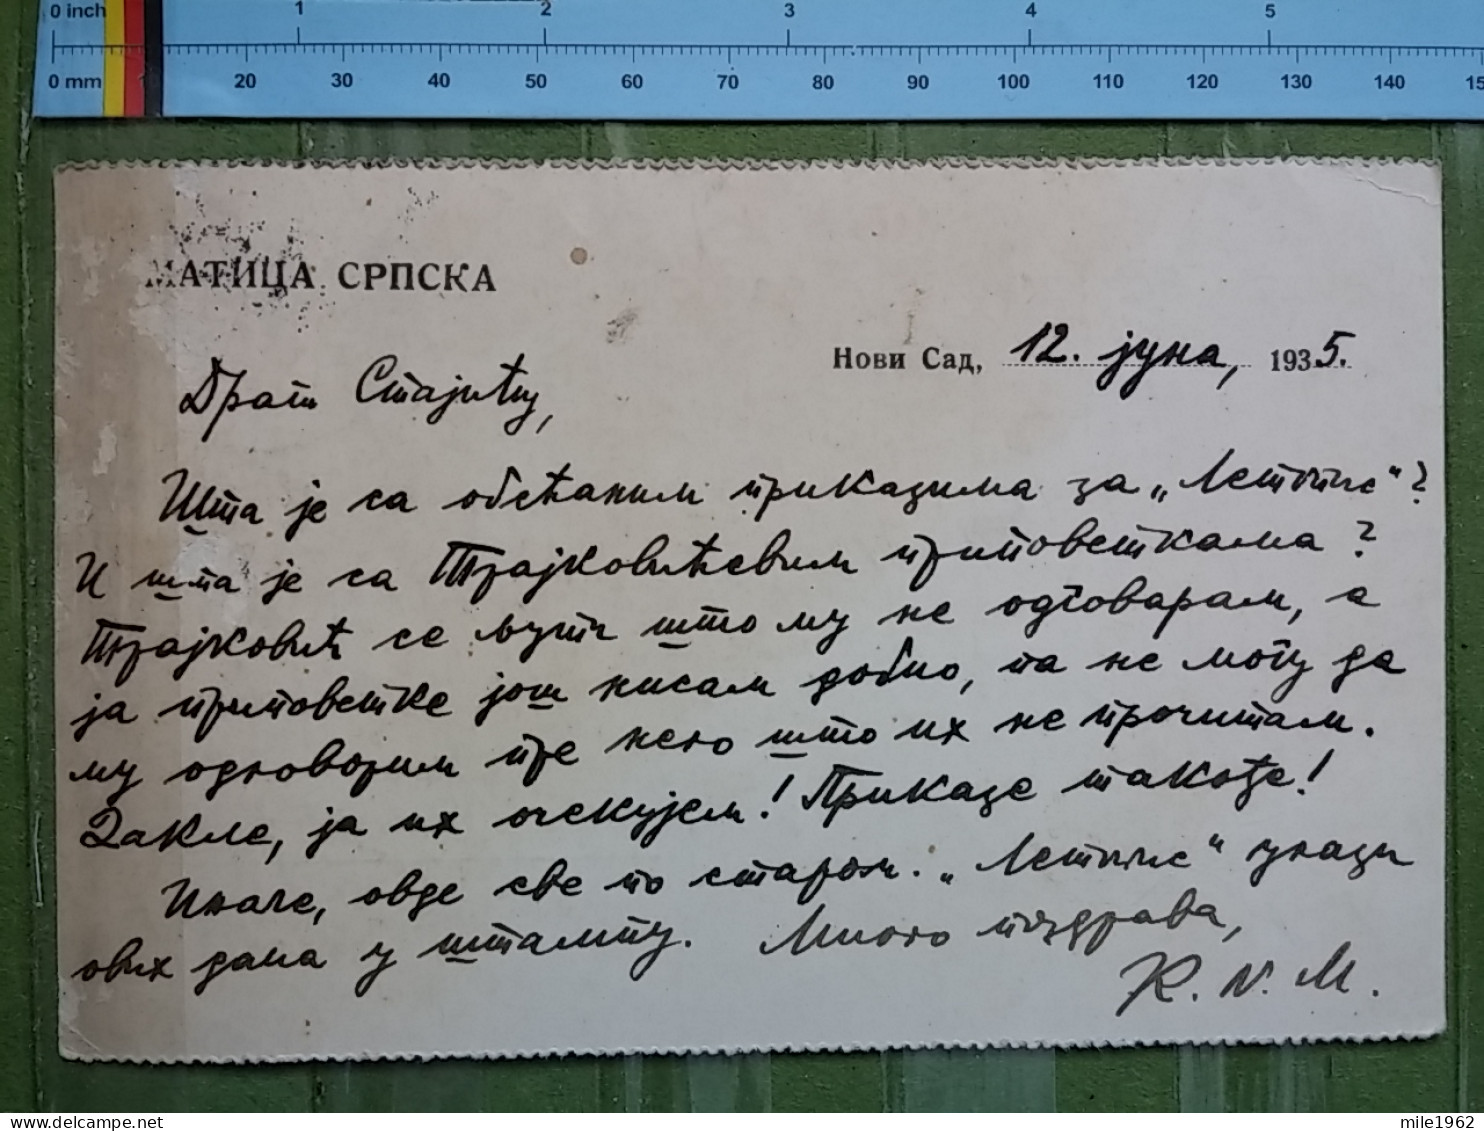 0 inch 1 2 3 4 5
0 mm 20 30 40 50 60 70 80 90 100 110 120 130 140 15
МАТИЦА СРПСКА
Нови Сад, 12. јуна, 1935.
Драги Стајићу,
Шта је са обећаним приказима за „Летопис"?
И шта је са Трајковићевим приповеткама?
Трајковић се љути што му не одговарам, а
ја приповетке још нисам добио, па не могу да
му одговорим пре него што их не прочитам.
Дакле, ја их очекујем! Приказе такође!
Иначе, овде све по старом. „Летопис" улази
ових дана у штампу. Много поздрава,
К. N. М.
mile1962